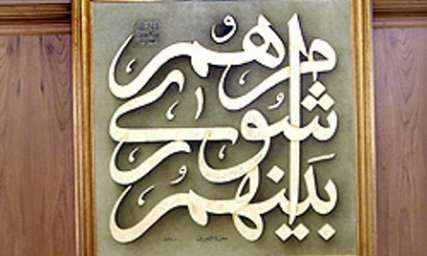 وأمرهم
شورى
بينهم